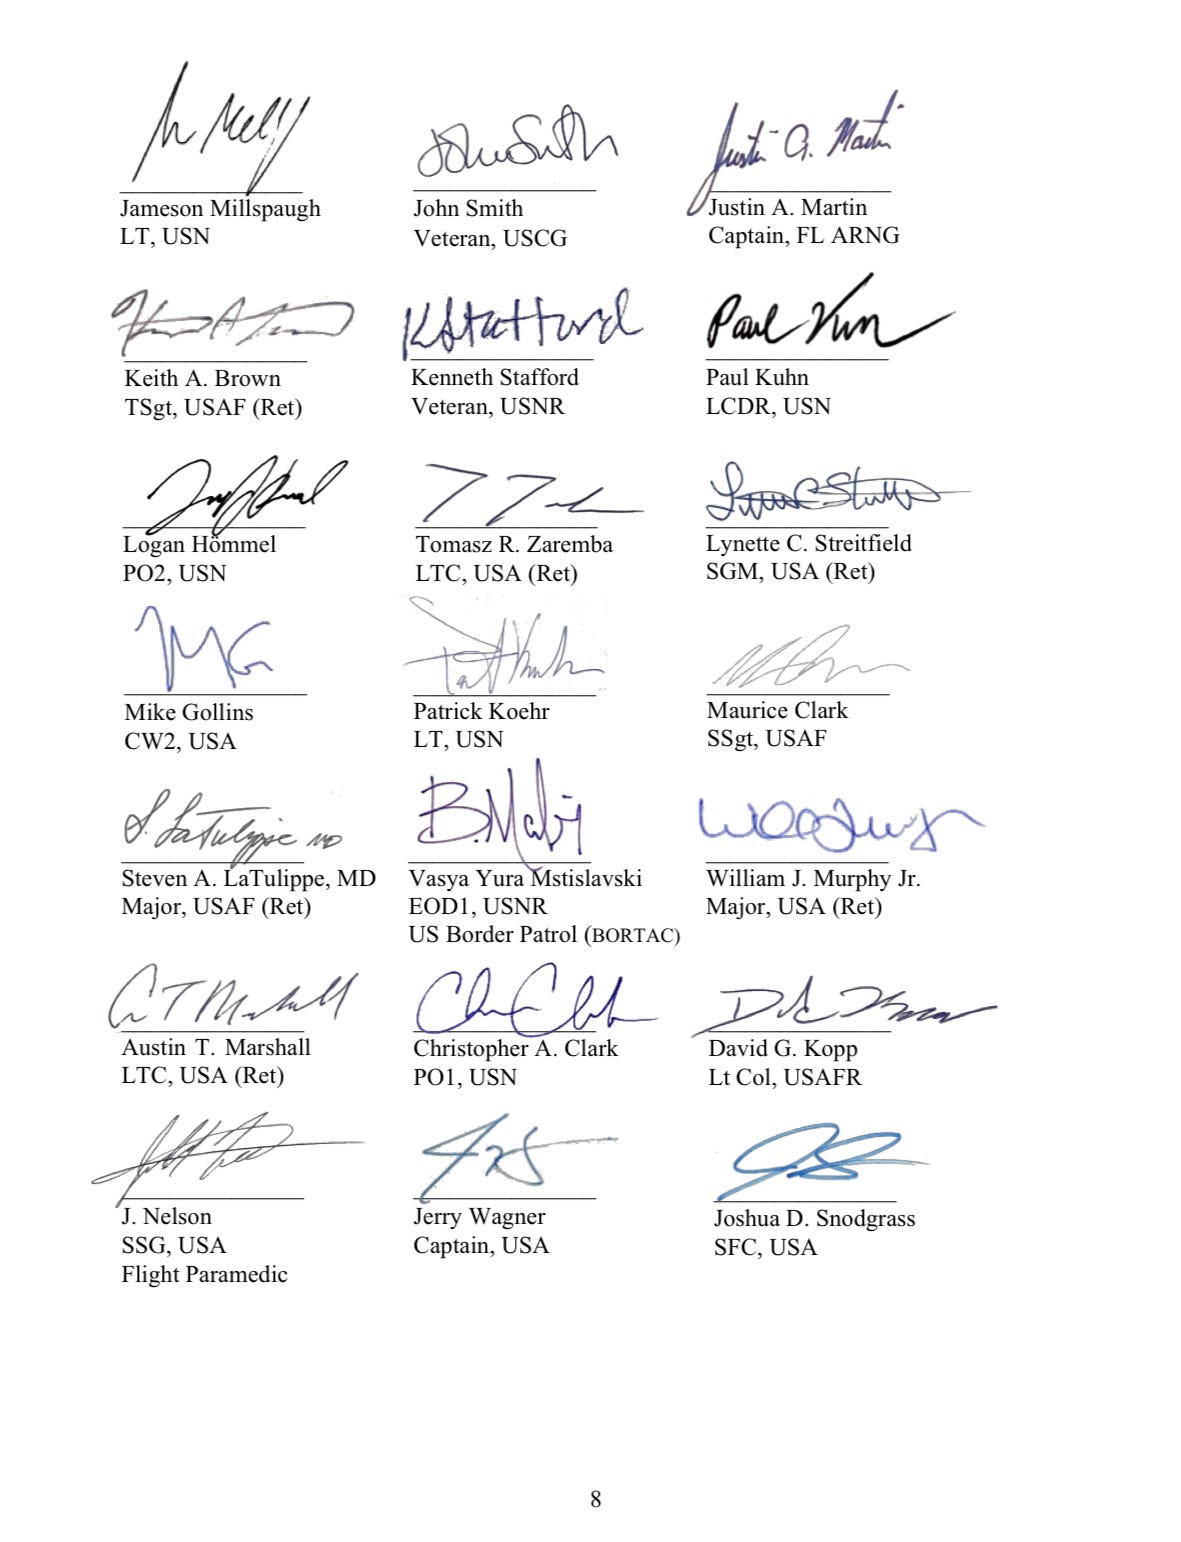 Jameson Millspaugh
LT, USN
John Smith
John Smith
Veteran, USCG
Justin A. Martin
Justin A. Martin
Captain, FL ARNG
Keith A. Brown
TSgt, USAF (Ret)
K Stafford
Kenneth Stafford
Veteran, USNR
Paul Kuhn
Paul Kuhn
LCDR, USN
Logan Hömmel
PO2, USN
Tomasz R. Zaremba
LTC, USA (Ret)
Lynette C. Streitfield
SGM, USA (Ret)
Mike Gollins
CW2, USA
Patrick Koehr
LT, USN
Maurice Clark
SSgt, USAF
S. LaTulippe MD
Steven A. LaTulippe, MD
Major, USAF (Ret)
Vasya Yura Mstislavski
EOD1, USNR
US Border Patrol (BORTAC)
William J. Murphy Jr.
Major, USA (Ret)
Austin T. Marshall
LTC, USA (Ret)
Christopher A. Clark
PO1, USN
David G. Kopp
Lt Col, USAFR
J. Nelson
SSG, USA
Flight Paramedic
Jerry Wagner
Captain, USA
Joshua D. Snodgrass
SFC, USA
8